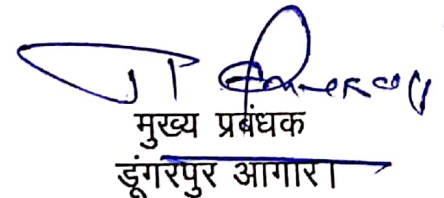 मुख्य प्रबंधक
डूंगरपुर आगार।